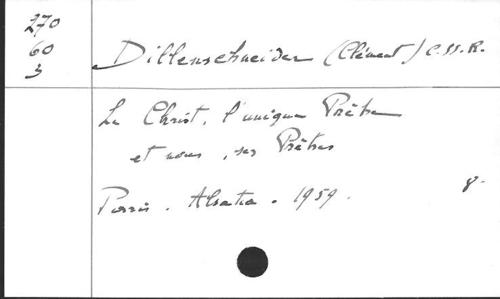 270
60
3
Dillenschneider (Clément) C.SS.R.
Le Christ, l'unique Prêtre
et nous, ses Prêtres
Paris. Alsatia. 1959.
8-